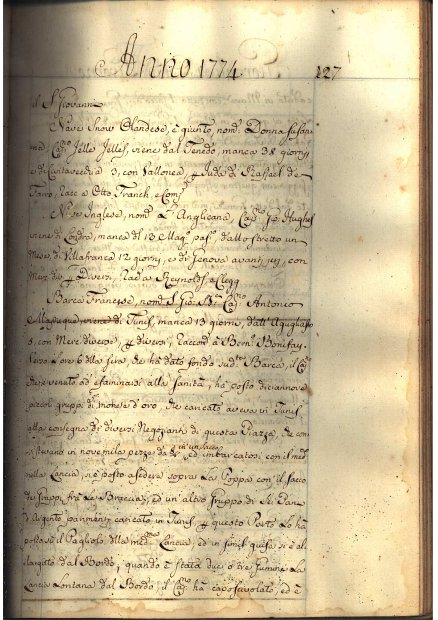 Anno 1774
127
il S Giovanni
Nave Snow Olandese, è giunto, nom.ᵃ Donna Susan-
na, Cap.ⁿ Jelle Jelles, viene dal Tenedo, manca 38 giorni,
e di Civitavecchia 3, con Vallonea, Juda di Raffael de
Faro, Racc a Otto Franck, e Comp.
N.ᵉ Inglese, nom.ᵃ L'Anglicana, Cap. Hughes
viene di Londra, manca dal 13 Mag.º pas.º, dallo stretto un
Mese, di Villafranca 12 giorni, e di Genova avant jeri, con
Merc. e Diversi, Racc.ᵃ a Reynolds, e Clegg
Barca Francese, nom.ᵃ S Gio: B.ᵃ Antonio
viene di Tunis, manca 13 giorni, dall'
3, con Merc diverse, e diversi, Raccom.ᵃ a Bern.º Bonifay
Verso l'ore 6 della sera, che ha dato fondo sud.ᵗᵃ Barca, il
è venuto ad esaminarsi alla Sanità, ha posto diciannove
piccoli gruppi di monete d'oro, che caricato aveva in Tunis
alla consegna di diversi Negozianti di questa Piazza, che con-
sistevano in novemila pezze da in un sacco, ed imbarcatosi con il med.º
nella Lancia, si è posto a sedere sopra la Poppa con il sacco
de' gruppi frà le Braccia, ed un' altro gruppo di
d'Argento parimenti caricato in Tunis questo Porto lo ha
posto sù il Pagliolo della med.ᵐᵃ Lancia, ed in simil guisa si è al-
largato dal Bordo, quando è stata due o tre la
Lancia lontana dal Bordo, il ha capo scivolato, ed è